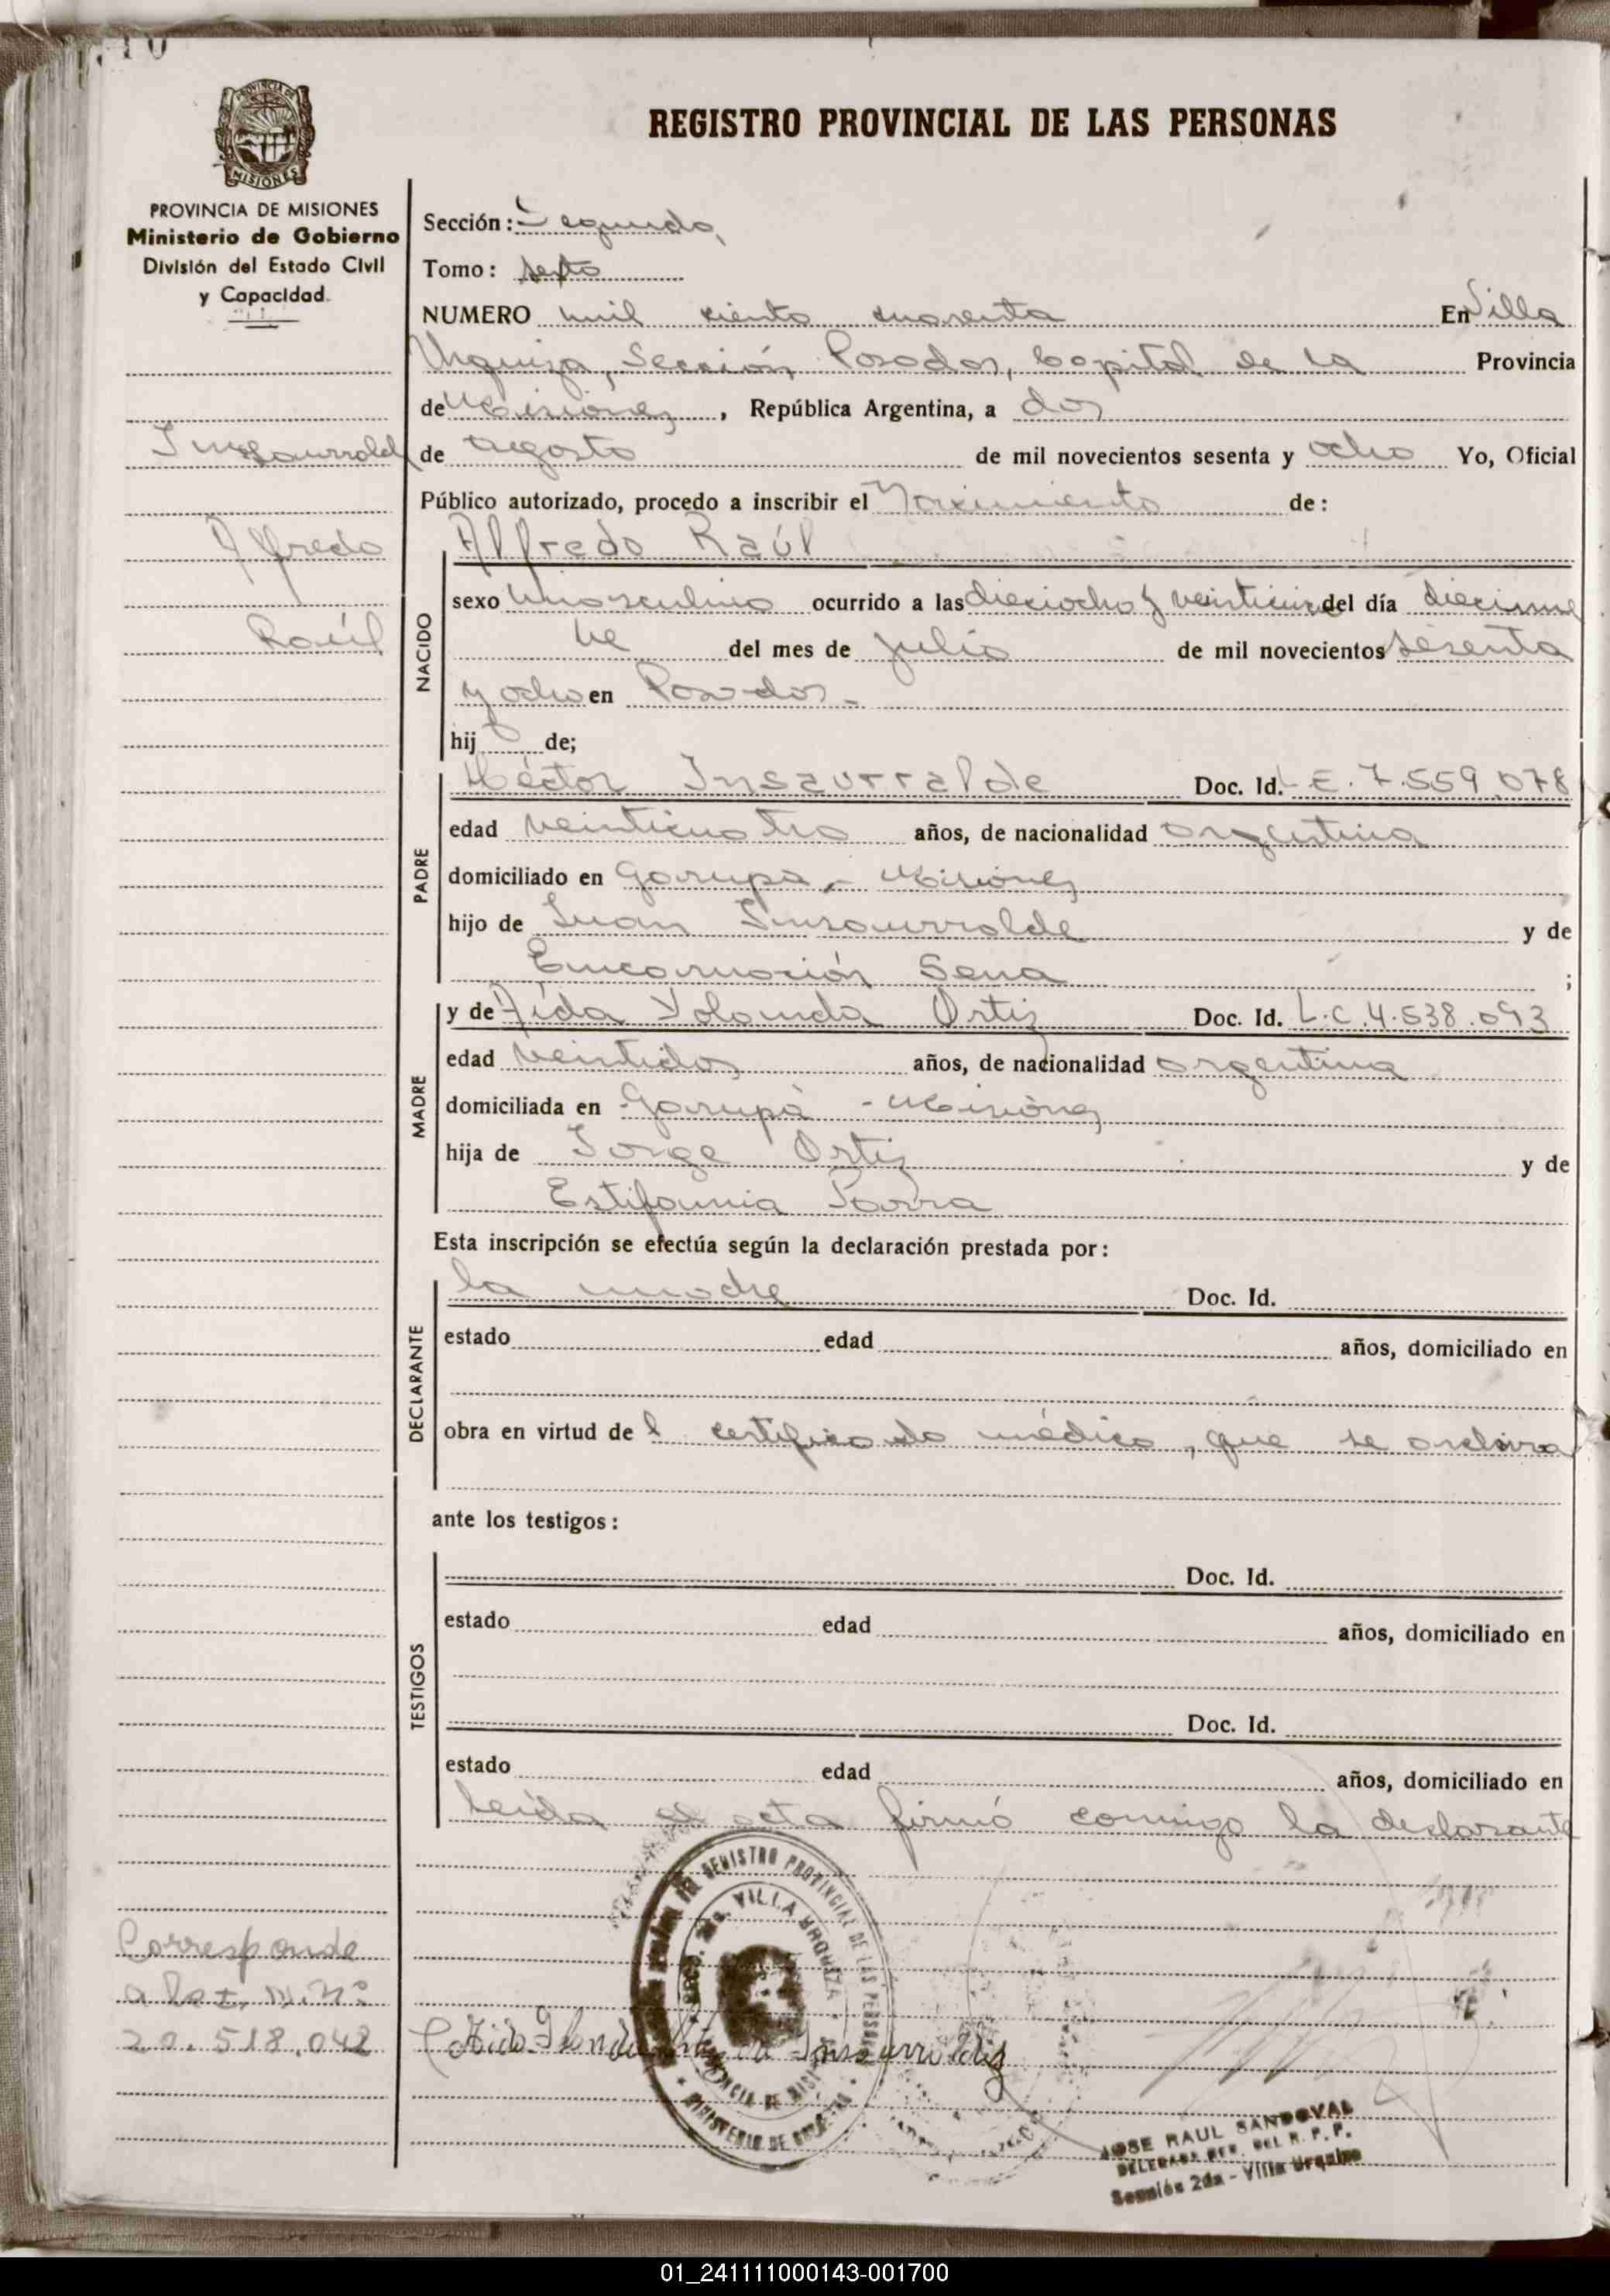 PROVINCIA DE
MISIONES
REGISTRO PROVINCIAL DE LAS PERSONAS
PROVINCIA DE MISIONES
Ministerio de Gobierno
División del Estado Civil
y Capacidad
Sección: Segunda
Tomo: sexto
NUMERO mil ciento cuarenta En Villa
Urquiza, Sección Posadas, Capital de la Provincia
de Misiones, República Argentina, a dos
Insaurralde
de agosto de mil novecientos sesenta y ocho Yo, Oficial
Público autorizado, procedo a inscribir el Nacimiento de:
Alfredo
Alfredo Raúl
NACIDO
sexo masculino ocurrido a las dieciocho y veinticinco del día diecinue
Raúl
ve del mes de julio de mil novecientos sesenta
y ocho en Posadas.-
hijo de;
PADRE
Héctor Insaurralde Doc. Id. L.E. 7.559.078
edad veinticuatro años, de nacionalidad argentina
domiciliado en Garupá - Misiones
hijo de Juan Insaurralde y de
Encarnación Sena ;
MADRE
y de Aída Yolanda Ortiz Doc. Id. L.C.4.538.093
edad veintidos años, de nacionalidad argentina
domiciliada en Garupá - Misiones
hija de Jorge Ortiz y de
Estifania Parra
Esta inscripción se efectúa según la declaración prestada por:
DECLARANTE
la madre Doc. Id.
estado edad años, domiciliado en
obra en virtud del certificado médico, que se archiva
ante los testigos:
TESTIGOS
Doc. Id.
estado edad años, domiciliado en
Doc. Id.
estado edad años, domiciliado en
Leída el acta firmó conmigo la declarante
REGISTRO PROVINCIAL DE LAS PERSONAS
VILLA URQUIZA
MINISTERIO DE
Corresponde
a la M.N°
20.518.042
Aida
JOSE RAUL SANDOVAL
DEL R. P. P.
Sección 2da - Villa Urquiza
01_241111000143-001700